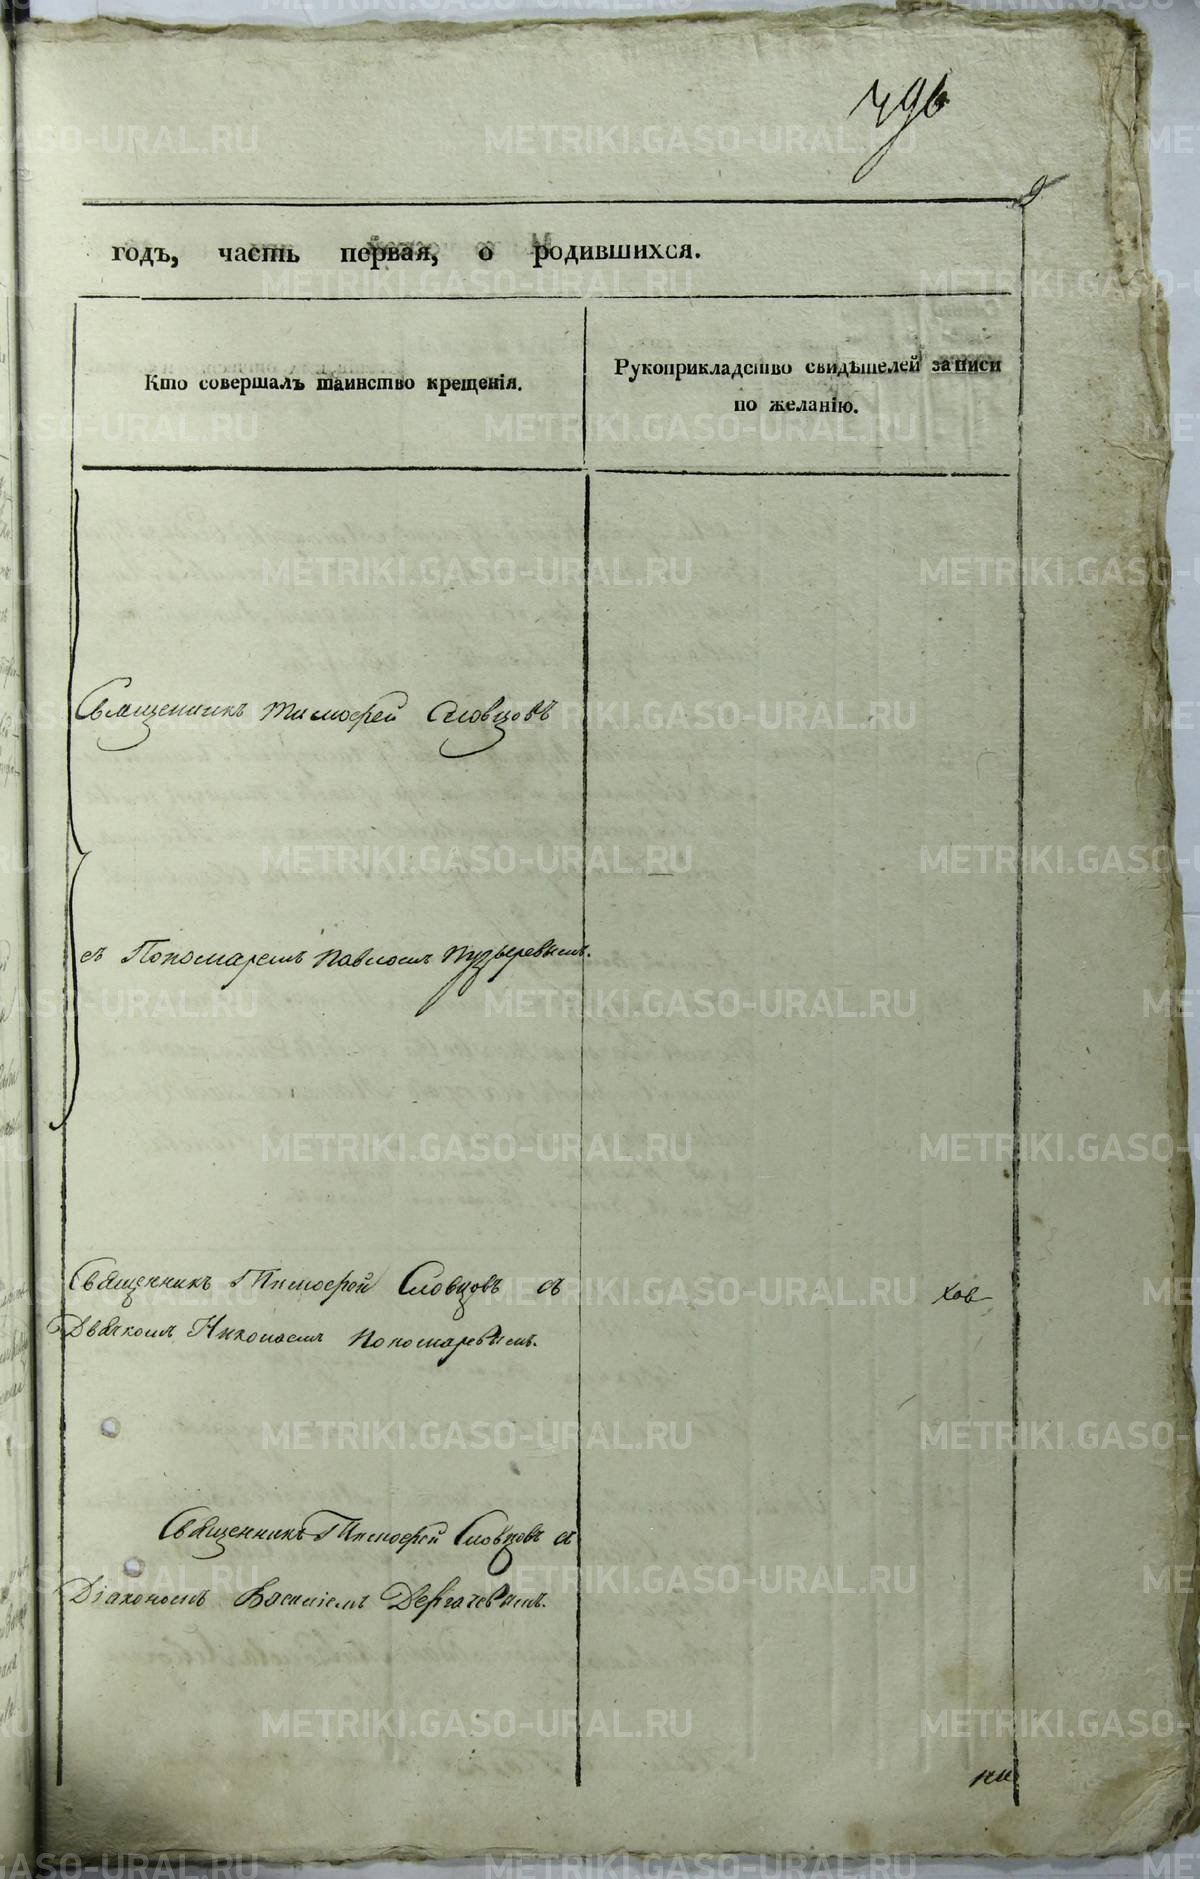 796
9
годъ, часть первая, о родившихся.
Кто совершалъ таинство крещенія.
Рукоприкладство свидѣтелей записи
по желанію.
Священникъ Тимофей Словцовъ
съ Пономаремъ Павломъ Пузыревымъ.
Священникъ Тимофей Словцовъ съ
Дьячкомъ Николаемъ Пономаревымъ.
хов
Священникъ Тимофей Словцовъ съ
Діакономъ Василіемъ Дергачевымъ.
METRIKI.GASO-URAL.RU